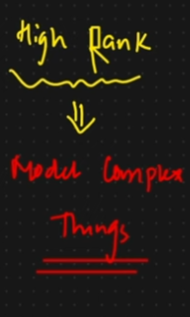 High Rank
⇓
Model Complex
Things